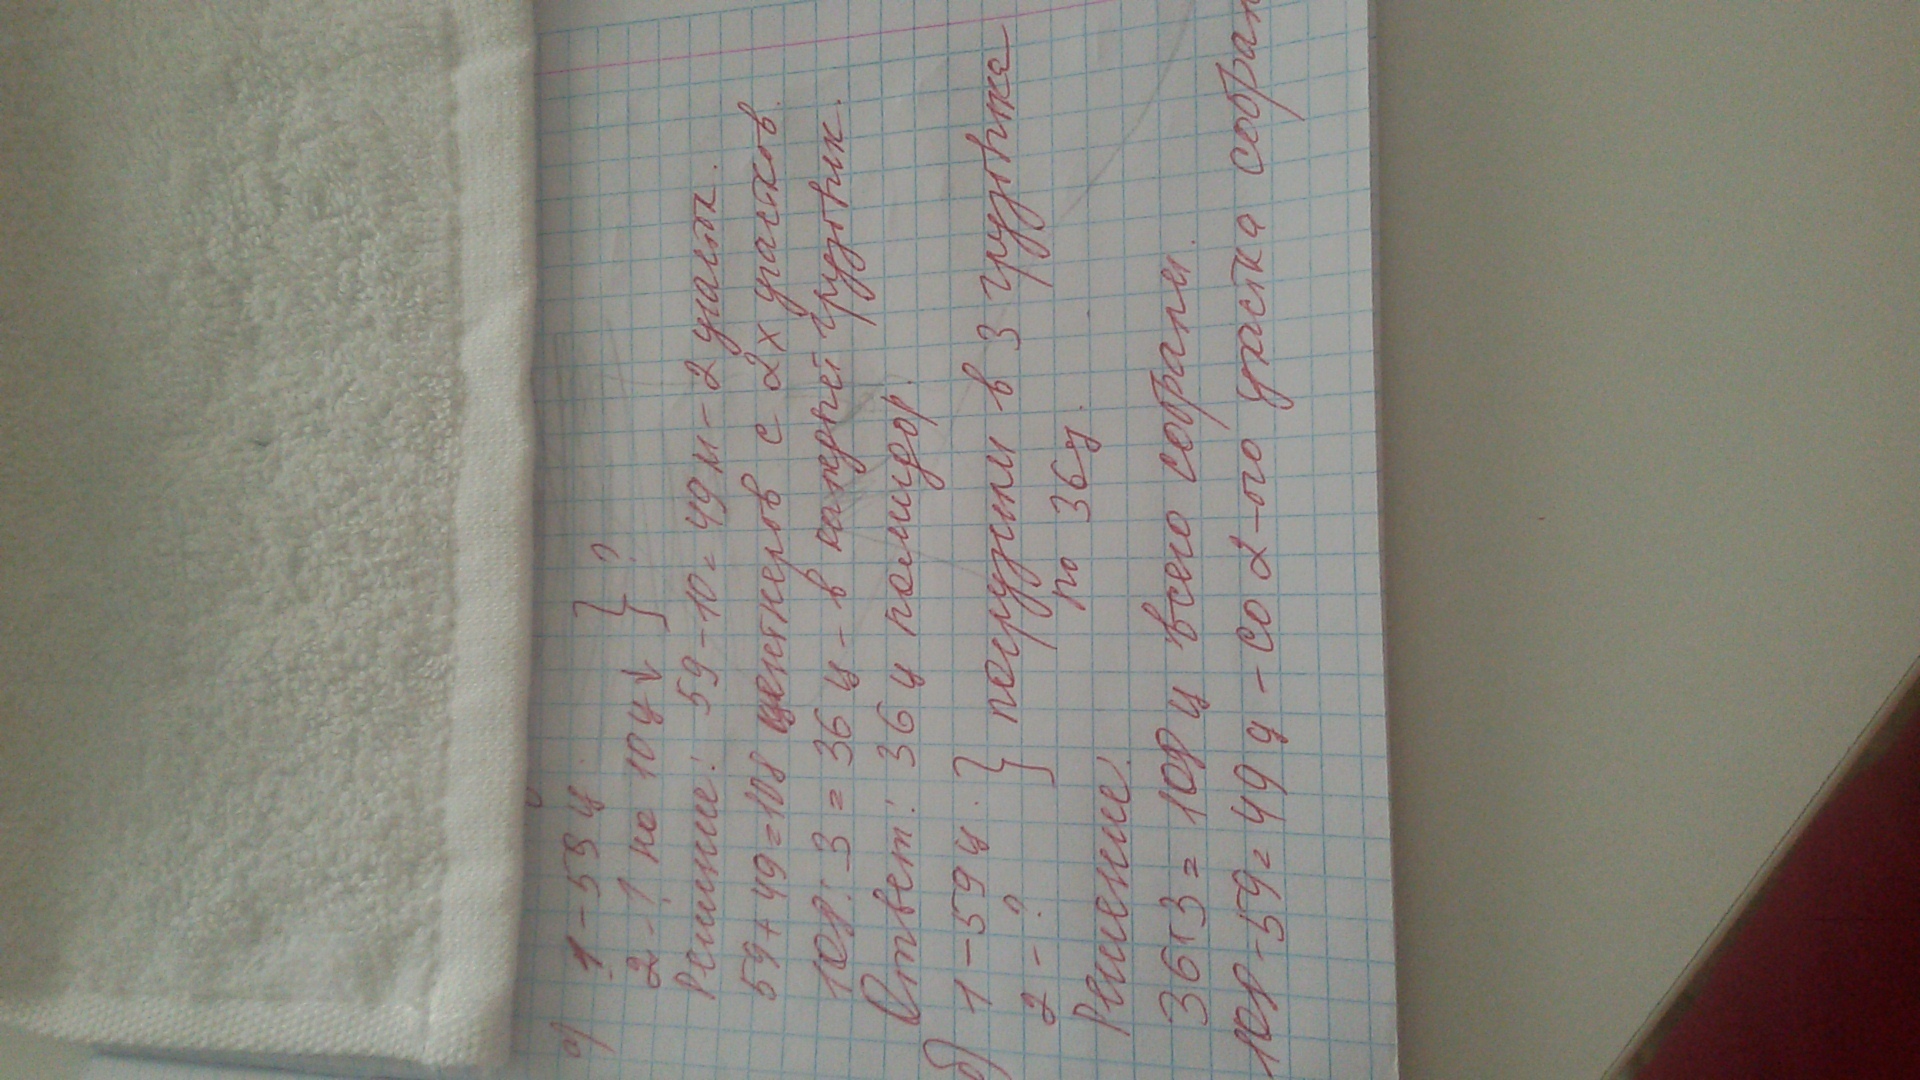 а) 1 - 59 ц.
2 - ? на 10 ц ↓ } ?
Решение: 59 - 10 = 49 ц - 2 участк.
59 + 49 = 108 центнеров с 2х участков.
108 : 3 = 36 ц - в каждый грузовик.
Ответ: 36 ц помидор.
б) 1 - 59 ц.
2 - ? } погрузили в 3 грузовика
по 36 ц.
Решение:
36 · 3 = 108 ц всего собрали.
108 - 59 = 49 ц - со 2-го участка собрали